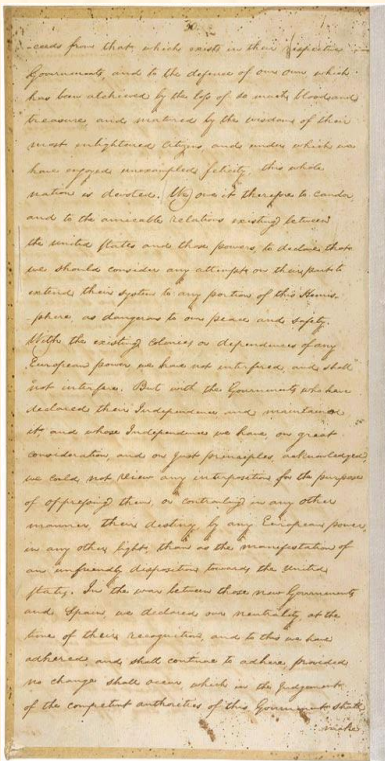 ceeds from that which exists in their respective
Governments, and to the defence of our own which
has been atchieved by the loss of so much blood and
treasure and matured by the wisdom of their
most enlightened citizens and under which we
have enjoyed unexampled felicity, this whole
nation is devoted. We owe it therefore to candor
and to the amicable relations existing between
the united States and those powers, to declare that
we should consider any attempt on their part to
extend their system to any portion of this Hemis-
phere, as dangerous to our peace and safety.
With the existing Colonies or dependencies of any
European power we have not interfered, and shall
not interfere. But with the Governments who have
declared their Independence and maintained
it and whose Independence we have, on great
consideration, and on just principles, acknowledged,
we could not view any interposition for the purpose
of oppressing them or controling in any other
manner, their destiny by any European power,
in any other light, than as the manifestation of
an unfriendly disposition towards the United
States. In the war between those new Governments
and Spain we declared our neutrality at the
time of their recognition, and to this we have
adhered and shall continue to adhere, provided
no change shall occur which in the judgement
of the competent authorities of this Government shall
make